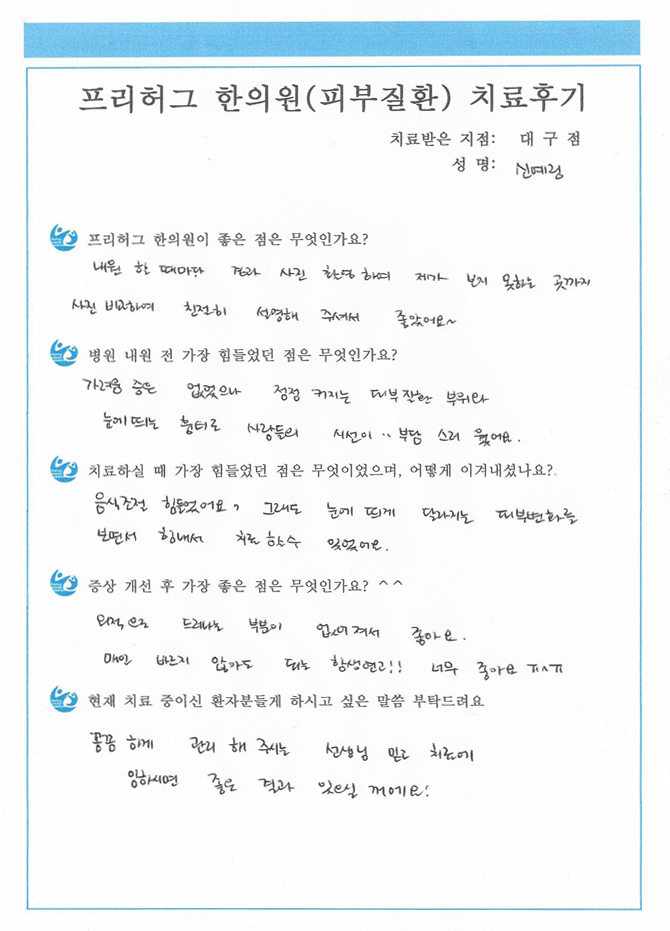 프리허그 한의원(피부질환) 치료후기
치료받은 지점: 대 구 점
성 명: 신예림
프리허그 한의원이 좋은 점은 무엇인가요?
내원 한 때마다 경과 사진 촬영하여 제가 보지 못하는 곳까지
사진 비교하여 친절히 설명해 주셔서 좋았어요~
병원 내원 전 가장 힘들었던 점은 무엇인가요?
가려움 증은 없었으나 점점 커지는 피부질환 부위와
눈에띄는 흉터로 사람들의 시선이.. 부담 스러 웠어요.
치료하실 때 가장 힘들었던 점은 무엇이었으며, 어떻게 이겨내셨나요?.
음식조절 힘들었어요, 그래도 눈에 띄게 달라지는 피부변화를
보면서 힘내서 치료 할수 있었어요.
증상 개선 후 가장 좋은 점은 무엇인가요? ^ ^
외적으로 드러나는 부분이 없어져서 좋아요.
매일 바르지 않아도 되는 항생연고!! 너무 좋아요 ㅠ^ㅠ
현재 치료 중이신 환자분들게 하시고 싶은 말씀 부탁드려요
꼼꼼 하게 관리 해 주시는 선생님 믿고 치료에
임하시면 좋은 결과 있으실 꺼에요!